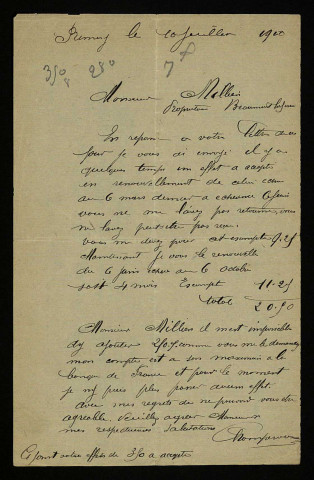 le 10 juillet 1900
350 250 78
Monsieur Millien
Propriétaire Beaumont
En reponse a votre lettre de ce
jour je vous ai envoyé il y a
quelques temps un effet a accepter
en renouvellement de celui
du 6 mars dernier a echeance 6 juin
vous ne me lavez pas retourné, vous
ne lavez peut etre pas reçu.
vous me devez pour escompte 9.25
Maintenant je vous le renouvelle
du 6 juin au 6 octobre
soit 4 mois Escompte 11.25
total 20.50
Monsieur Millien il mest impossible
dy ajouter 250 f comme vous me le demandez
mon compte est a son maximum a la
banque de France et pour le moment
je ny puis plus passer aucun effet.
avec mes regrets de ne pouvoir vous etre
agreable. Veuillez agreer Monsieur
mes respectueuses salutations
Ci joint votre effet de 350 a accepter